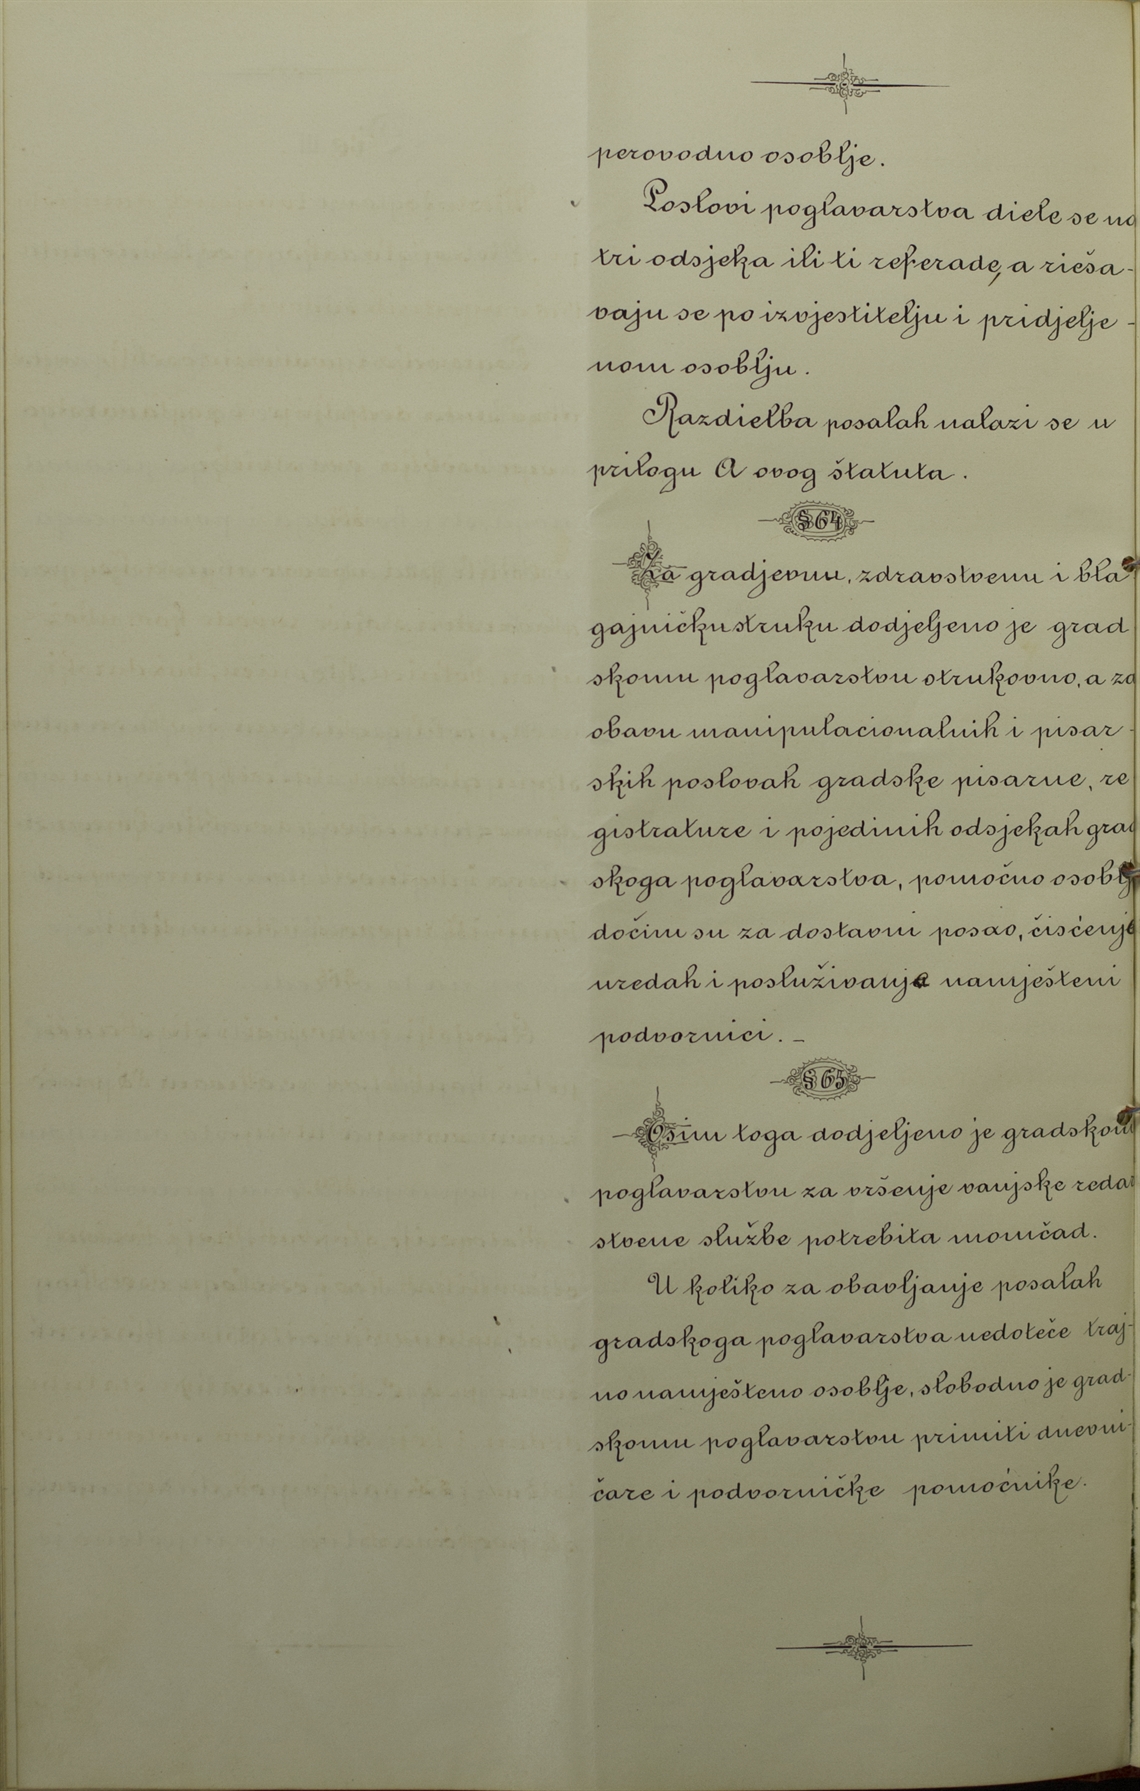 perovodno osoblje.
Poslovi poglavarstva diele se na
tri odsjeka ili ti referade, a rieša-
vaju se po izvjestitelju i pridjelje-
nom osoblju.
Razdielba posalah nalazi se u
prilogu A ovog štatuta.
§ 64
Za gradjevnu, zdravstvenu i bla
gajničku struku dodjeljeno je grad
skomu poglavarstvu strukovno, a za
obavu manipulacionalnih i pisar-
skih poslovah gradske pisarne, re
gistrature i pojedinih odsjekah grad
skoga poglavarstva, pomoćno osoblje
dočim su za dostavni posao, čisćenje
uredah i posluživanje namješteni
podvornici. -
§ 65
Osim toga dodjeljeno je gradskom
poglavarstvu za vršenje vanjske redar
stvene službe potrebita momčad.
U koliko za obavljanje posalah
gradskoga poglavarstva nedoteče traj-
no namješteno osoblje, slobodno je grad-
skomu poglavarstvu primiti dnevni-
čare i podvorničke pomoćnike.